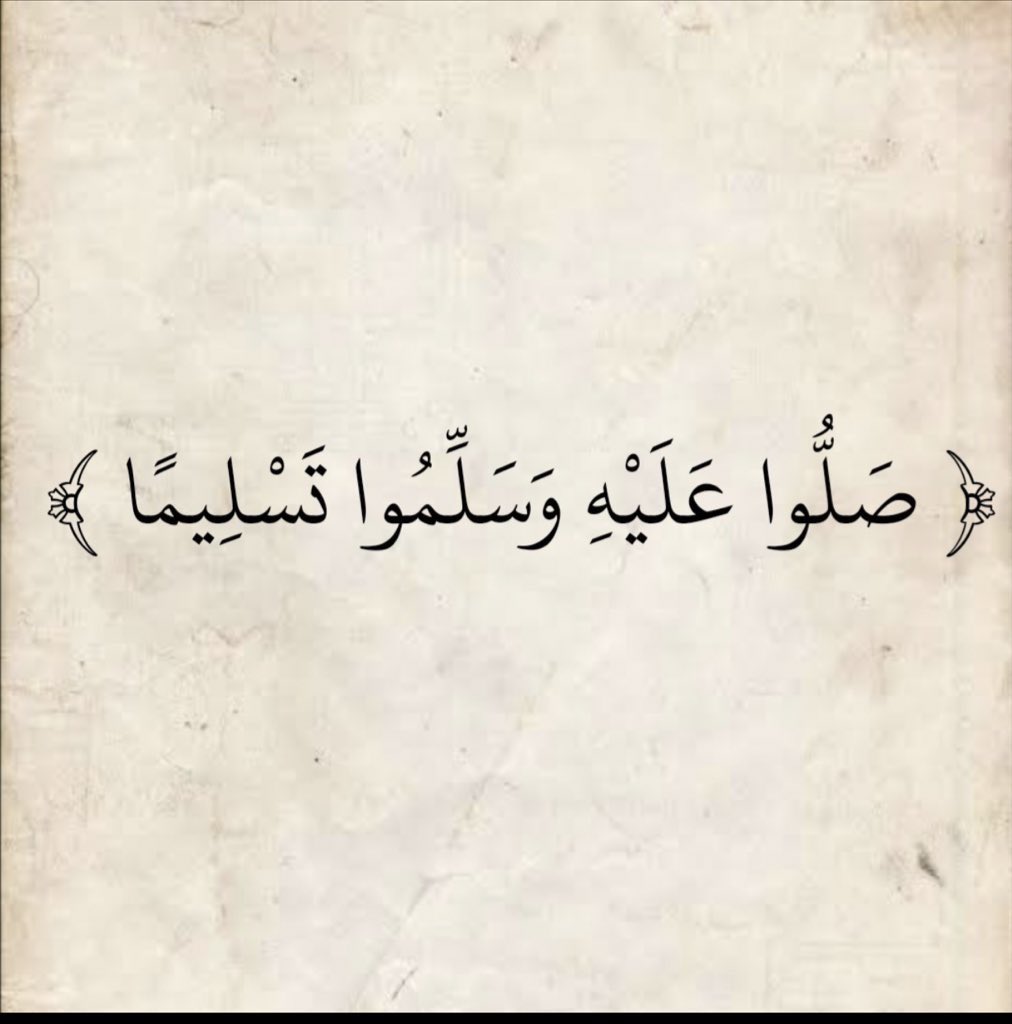 ﴿ صَلُّوا عَلَيْهِ وَسَلِّمُوا تَسْلِيمًا ﴾